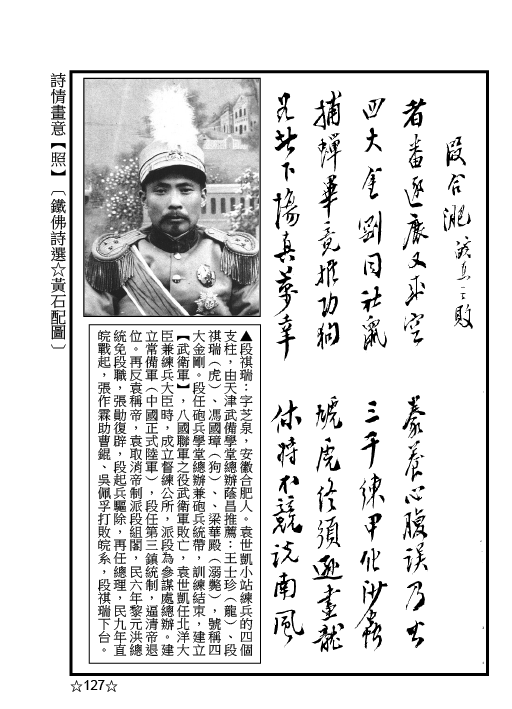 段合肥
者番逐鹿又成空
豢養心腹誤乃公
四大金剛同社鼠
三千練甲化沙蟲
捕蟬畢竟推功狗
虎終須遜畫龍
此下場真萬幸
休將不競說南風
▲段祺瑞：字芝泉，安徽合肥人。袁世凱小站練兵的四個
支柱，由天津武備學堂總辦蔭昌推薦：王士珍（龍）、段
祺瑞（虎）、馮國璋（狗）、梁華殿（溺斃），號稱四
大金剛。段任砲兵學堂總辦兼砲兵統帶，訓練結束，建立
【武衛軍】，八國聯軍之役武衛軍敗亡，袁世凱任北洋大
臣兼練兵大臣時，成立督練公所，派段為參謀處總辦。建
立常備軍（中國正式陸軍），段任第三鎮統制，逼清帝退
位。再反袁稱帝，袁取消帝制派段組閣，民六年黎元洪總
統免段職，張勳復辟，段起兵驅除，再任總理，民九年直
皖戰起，張作霖助曹錕、吳佩孚打敗皖系，段祺瑞下台。
詩情畫意【照】〔鐵佛詩選☆黃石配圖〕
☆127☆